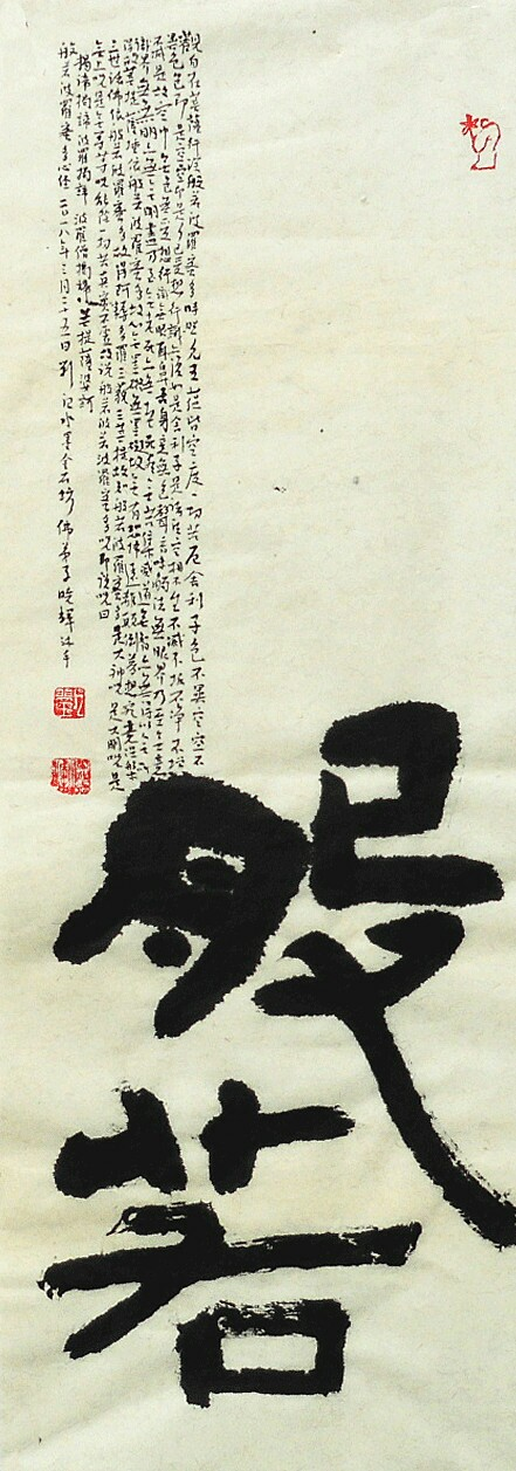 般若
觀自在菩薩行深般若波羅蜜多時照見五蘊皆空度一切苦厄舍利子色不異空空不
異色色即是空空即是色受想行識亦復如是舍利子是諸法空相不生不滅不垢不淨不增
不減是故空中無色無受想行識無眼耳鼻舌身意無色聲香味觸法無眼界乃至無意
識界無無明亦無無明盡乃至無老死亦無老死盡無苦集滅道無智亦無得以無所
得故菩提薩埵依般若波羅蜜多故心無罣礙無罣礙故無有恐怖遠離顛倒夢想究竟涅槃
三世諸佛依般若波羅蜜多故得阿耨多羅三藐三菩提故知般若波羅蜜多是大神咒是大明咒是
無上咒是無等等咒能除一切苦真實不虛故說般若波羅蜜多咒即說咒曰
揭諦揭諦波羅揭諦波羅僧揭諦菩提薩婆訶
般若波羅蜜多心經二〇一八年三月二十五日 水墨金石坊佛弟子曉輝沐手